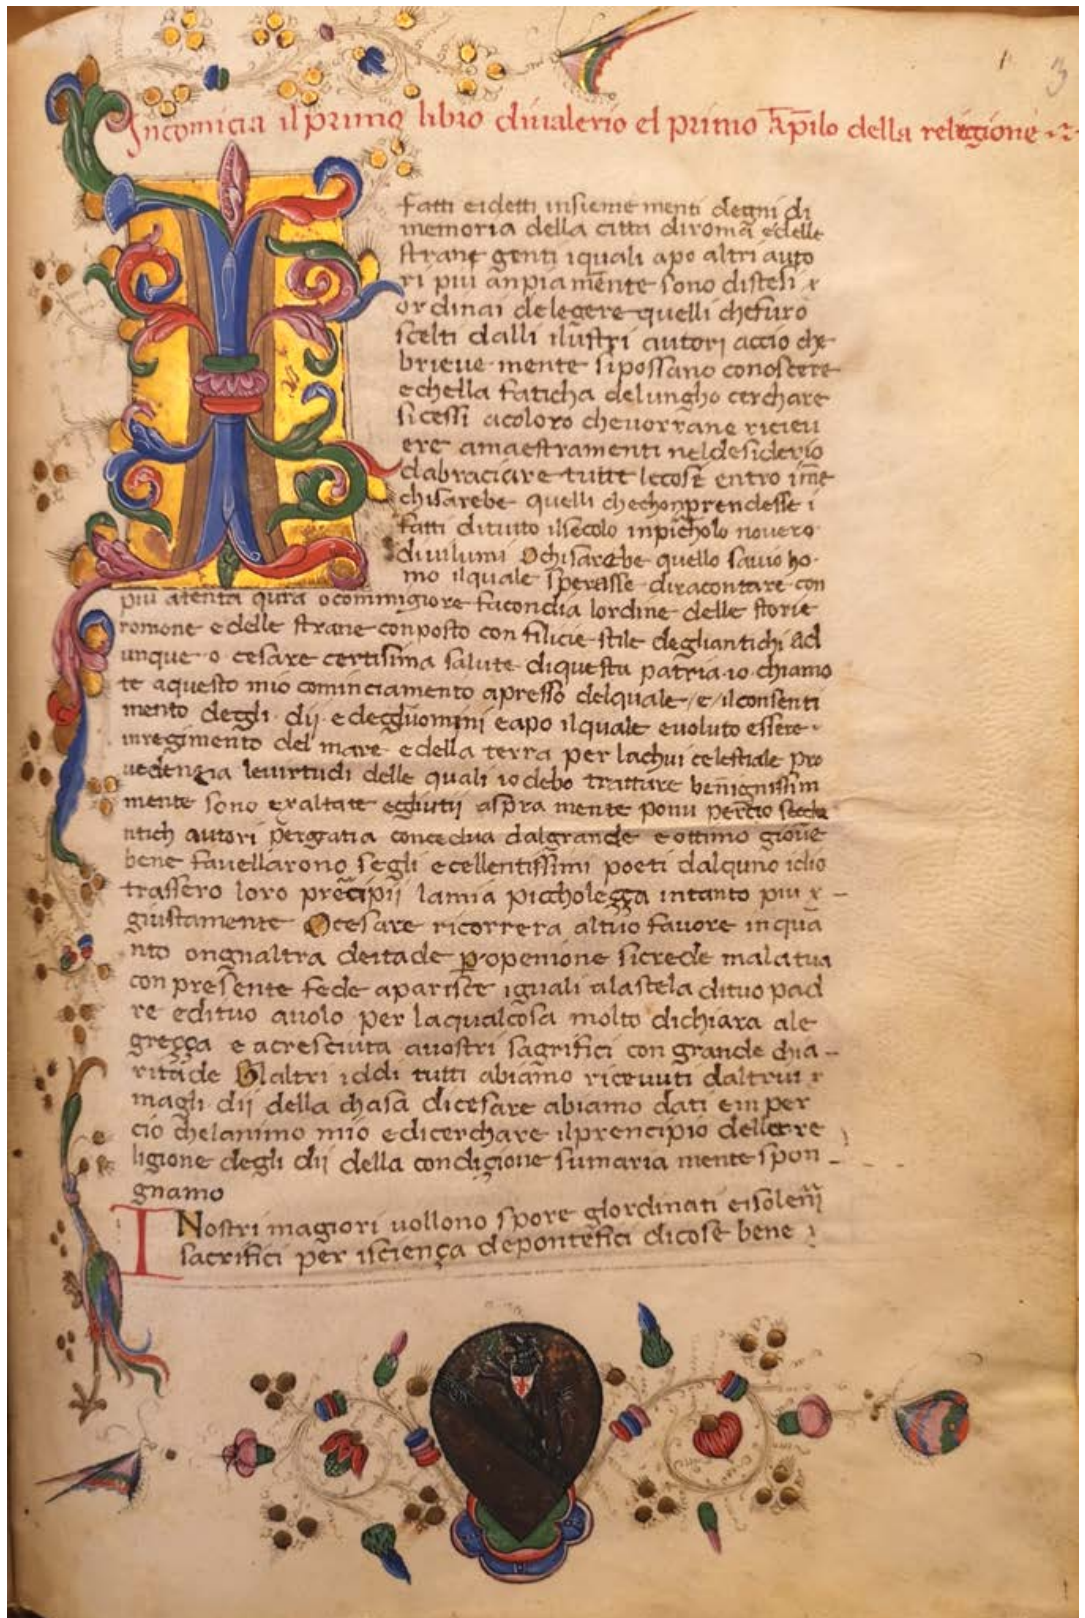 1 3
Incomicia il primo libro diualerio el primo Capilo della religione
I fatti eidetti insieme menti degni di
memoria della citta diroma edelle
strane genti iquali apo altri auto
ri piu anpiamente sono distesi r
ordinai delegere quelli chefuro
scelti dalli ilustri autori accio che
brieue mente sipossano conoscere
echella faticha delungho cerchare
sicessi acoloro cheuorrane riceu
ere amaestramenti neldesiderio
dabraciare tutte lecose entro
chisarebe quelli chechonprendesse i
fatti dituto ilsecolo inpicholo nouero
diuilumi Ochisarebe quello sauio ho
mo ilquale sperasse diracontare con
piu atenta qura ocommigiore facondia lordine delle storie
romone e delle strane conposto con filicie stile degliantichi ad
unque o cesare certisima salute diquesta patria io chiamo
te aquesto mio cominciamento apresso delquale /e/ ilconsenti
mento degli dij e degliuomini eapo ilquale euoluto essere
inregimento del mare e della terra per lachui celestiale pro
uedenza leuirtudi delle quali iodebo trattare benignissim
mente sono exaltate egliutij aspra mente ponu percio
ntich autori pergratia conceduta dalgrande e ottimo gioue
bene fauellarono segli ecellentissimi poeti dalquno idio
trassero loro precipij lamia piccholeçça intanto piu r
giustamente Ocesare ricorrera altuo fauore inqua
nto ongnaltra deitade peropenione sicrede malatua
con presente fede aparisce iguali alastela dituo pad
re edituo auolo per laqualcosa molto dichiara ale
greçça e acresciuta auostri sagrifici con grande chia
ritade Glaltri iddi tutti abiamo riceuuti daltrui r
magli dij della chasa dicesare abiamo dati e inper
cio chelanimo mio edicerchare ilprencipio dellarre
ligione degli dij della condiçione sumaria mente spon
gnamo
I Nostri magiori uollono spore glordinati eisolenni
sacrifici per isciença depontefici dicose bene